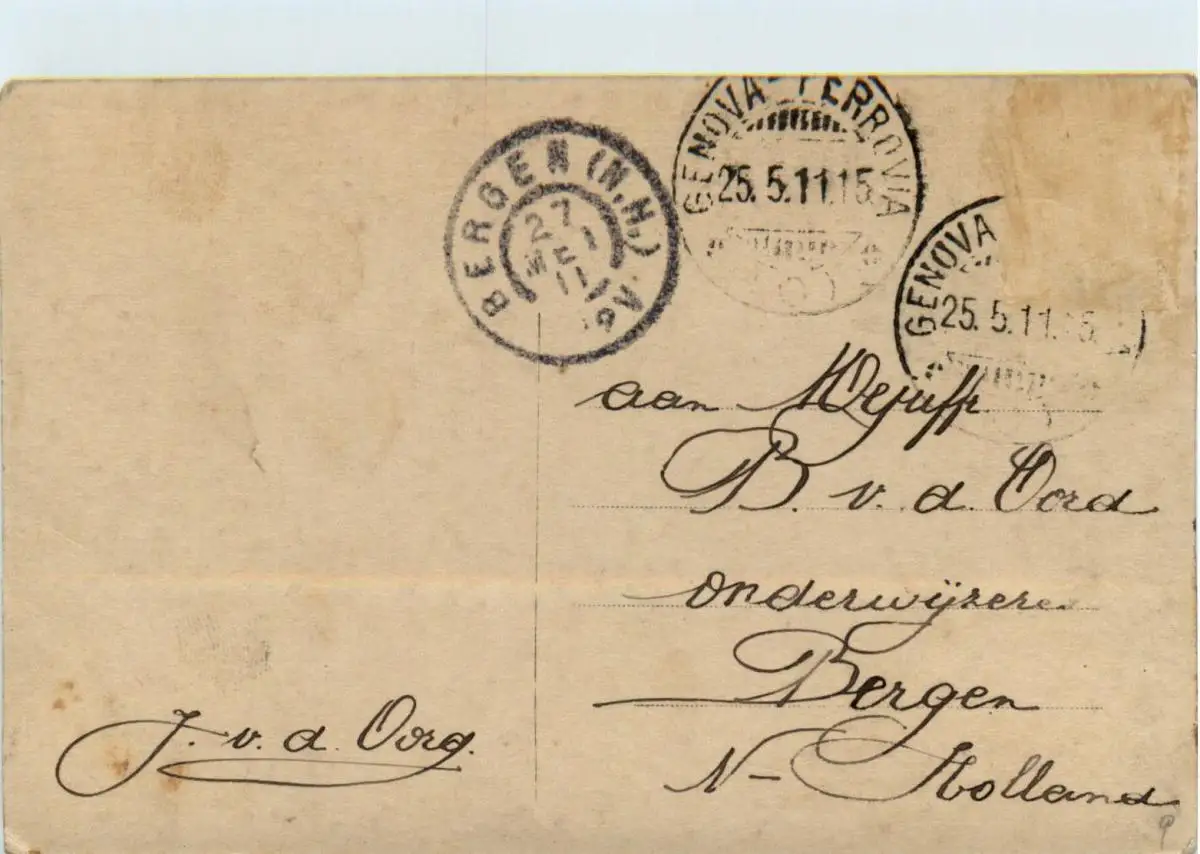 GENOVA-FERROVIA
25.5.11.15
BERGEN (N.H.)
27
MEI
11
9V.
GENOVA
25.5.11.15
aan Mejuffr
B. v. d. Oord
onderwijzeres
Bergen
N-Holland
J. v. d. Oord.